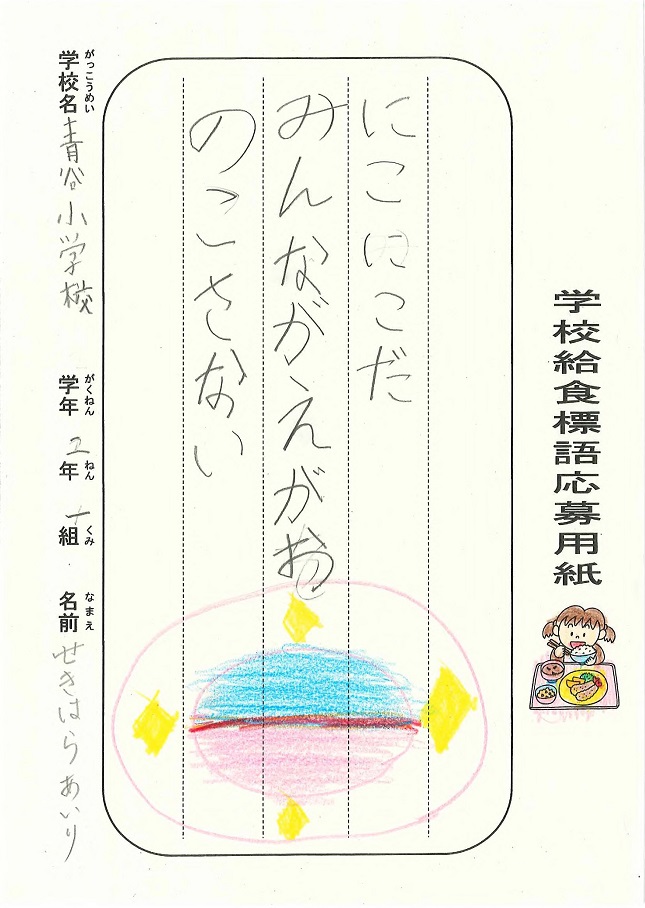 学校給食標語応募用紙
にこにこだ
みんながえがお
のこさない
がっこうめい
学校名 青谷小学校
がくねん
学年 2年 ねん
組 くみ
なまえ
名前 せきはらあいり